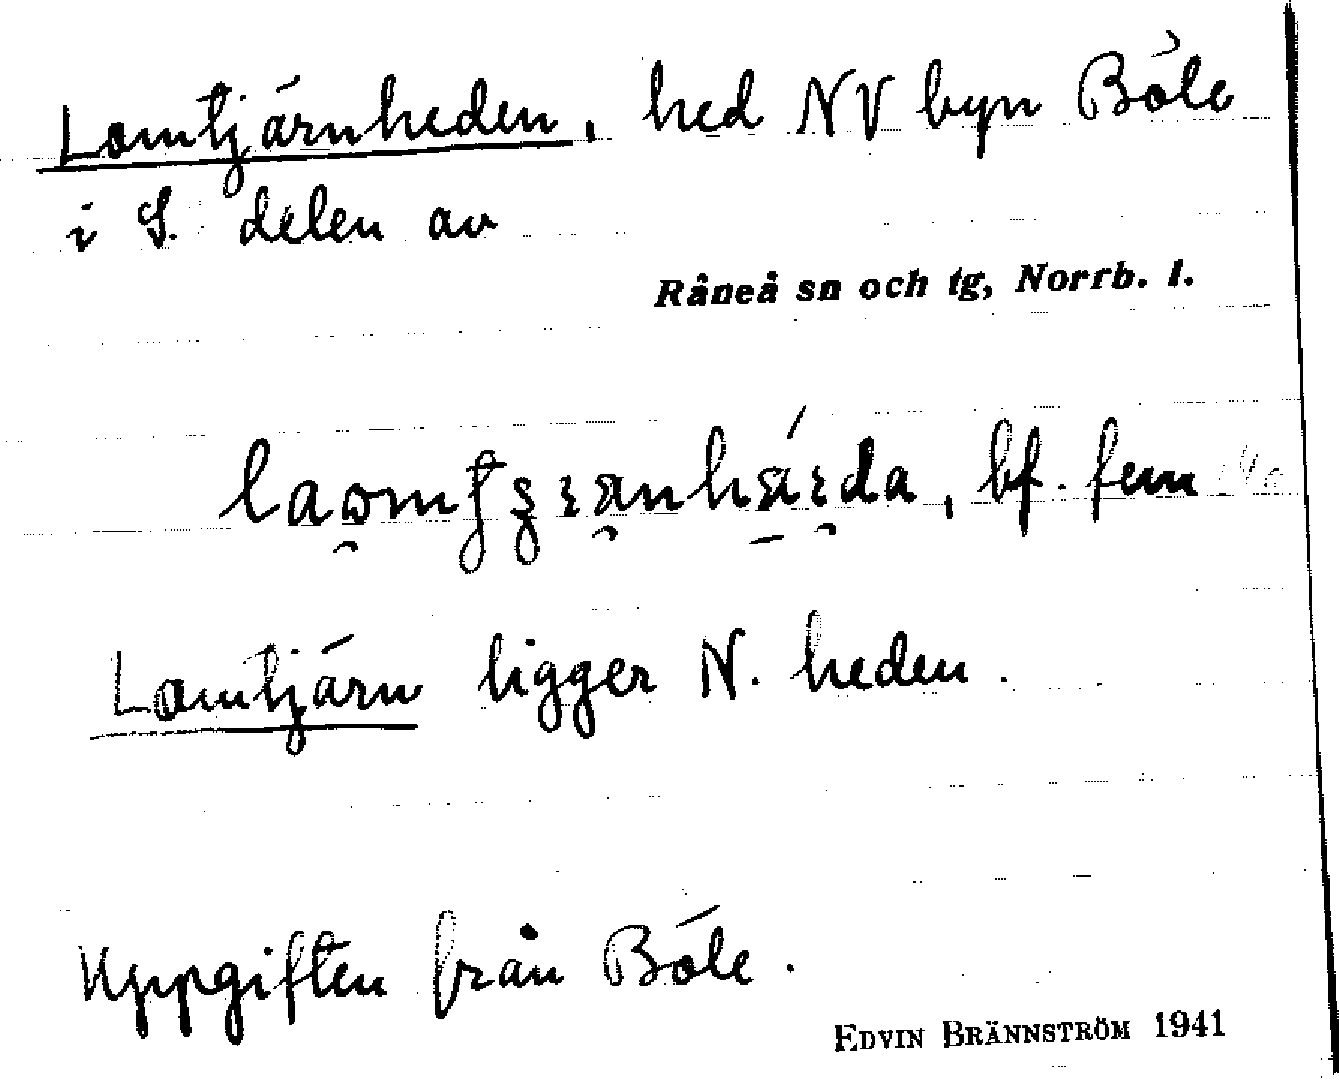 Lomtjärnheden, hed NV byn Böle
i S. delen av
Råneå sn och tg, Norrb. l.
bf. fem
Lomtjärn ligger N. heden.
Uppgiften från Böle.
EDVIN BRÄNNSTRÖM 1941